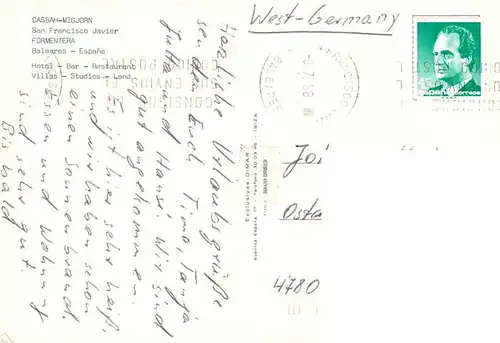 CASBAH-MIGJORN
San Francisco Javier
FORMENTERA
Baleares - España
Hotel - Bar - Restaurant
Villas - Studios - Land
Herzliche Urlaubsgrüße
senden Euch Timo, Tanja
Jutta und Hansi. Wir sind
gut angekommen.
Es ist hier sehr heiß,
und wir haben schon
einen Sonnenbrand.
Essen und Wohnung
sind sehr gut.
Bis bald
Exclusivas DIMAR
West-Germany
España correos
Joi
Osta
4780